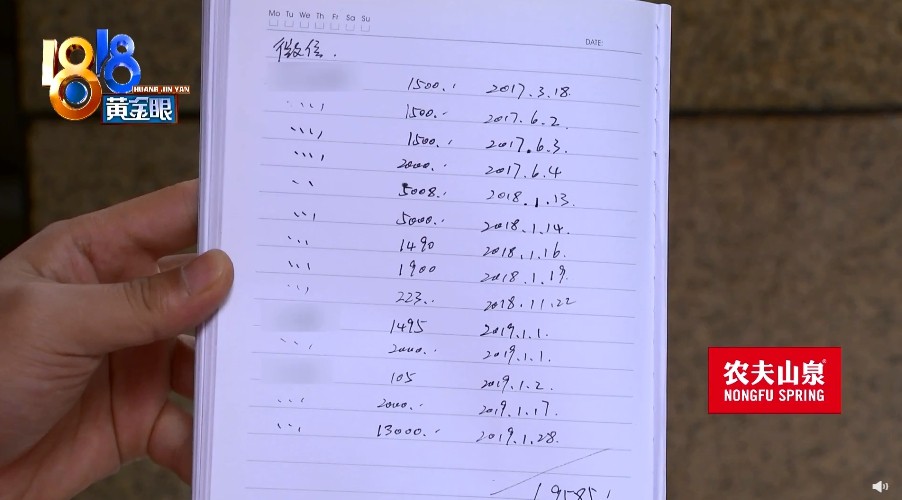 Mo Tu We Th Fr Sa Su
DATE:
微信.
1500.: 2017.3.18.
〃 1500.: 2017.6.2.
〃 1500.: 2017.6.3.
〃 2000.: 2017.6.4
〃 5008.: 2018.1.13.
〃 5000.: 2018.1.14.
〃 1490 2018.1.16.
〃 1900 2018.1.19.
〃 223.. 2018.11.22
1495 2019.1.1.
〃 2000.: 2019.1.1.
105 2019.1.2.
〃 2000.: 2019.1.17.
〃 13000.: 2019.1.28.
1818
HUANG JIN YAN
黄金眼
农夫山泉
NONGFU SPRING